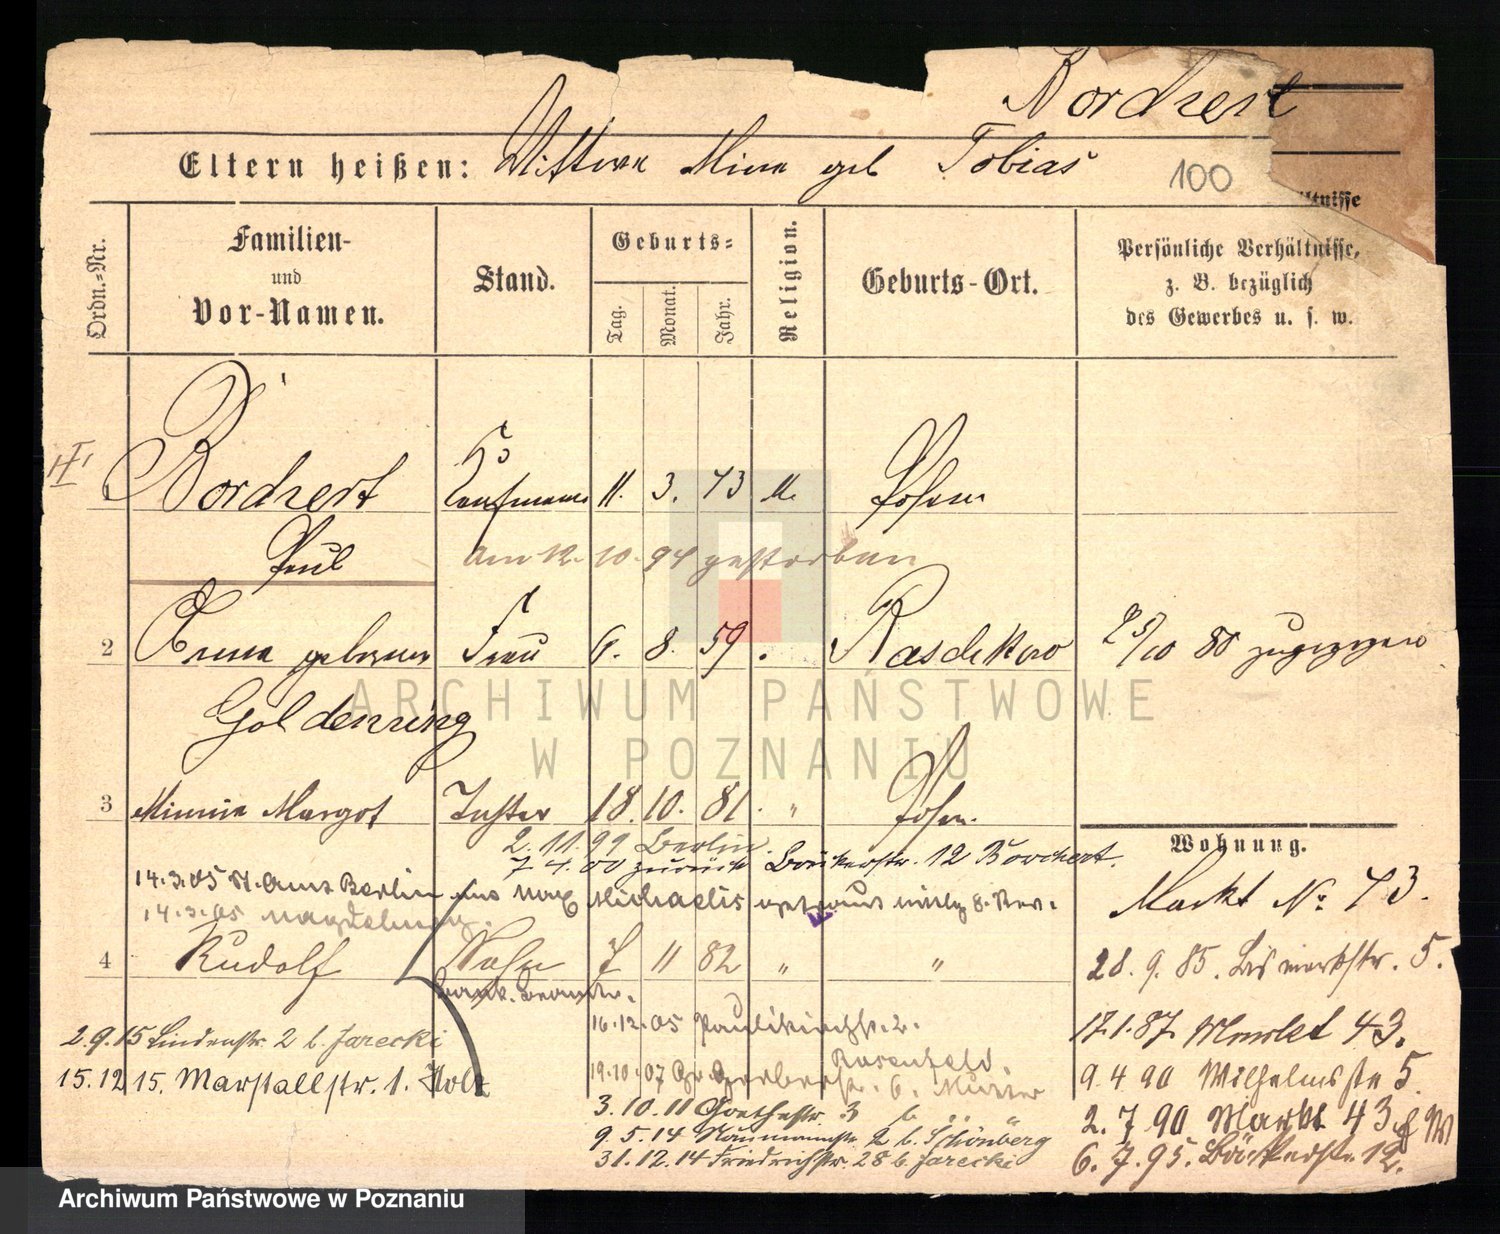 Borchert
Eltern heißen: Wittwe Mina geb Tobias
100
ltnisse
Ordn.-Nr.
Familien-
und
Vor-Namen.
Stand.
Geburts-
Tag.
Monat.
Jahr.
Religion.
Geburts-Ort.
Persönliche Verhältnisse,
z. B. bezüglich
des Gewerbes u. s. w.
1 Borchert Kaufmann 11. 3. 43 M. Posen
Paul am 12. 10. 94 gestorben
2 Anna geborene Frau 6. 8. 59 Raschkow 25/10 80 zugezogen
Goldenring
ARCHIWUM PAŃSTWOWE
W POZNANIU
3 Minnie Margot Tochter 18. 10. 81. " Posen.
2. 11. 99 Berlin.
7. 4. 00 zurück Bäckerstr. 12 Borchert.
14.3.05 St. Amt Berlin Max Michaelis getraut
14.3.05 Magdeburg.
4 Rudolf Sohn 7 11 82 " "
Bank. Beamter.
16.12.05 Paulikirchstr. 2.
19.10.07 Gr. Gerberstr. 6. Mutter
Rosenfeld.
3.10.11 Goethestr. 3 b. "
9.5.14 Naumannstr. 2 b. Schönberg
31.12.14 Friedrichstr. 28 b. Jarecki
2.9.15 Lindenstr. 2 b. Jarecki
15.12 15. Marstallstr. 1. Holz
Wohnung.
Markt No. 73.
28. 9. 85. Bismarkstr. 5.
17.1.87 Markt 43.
9. 4 90 Wilhelmsstr 5.
2. 7 90 Markt 43
6. 7. 95. Bäckerstr. 12.
Archiwum Państwowe w Poznaniu